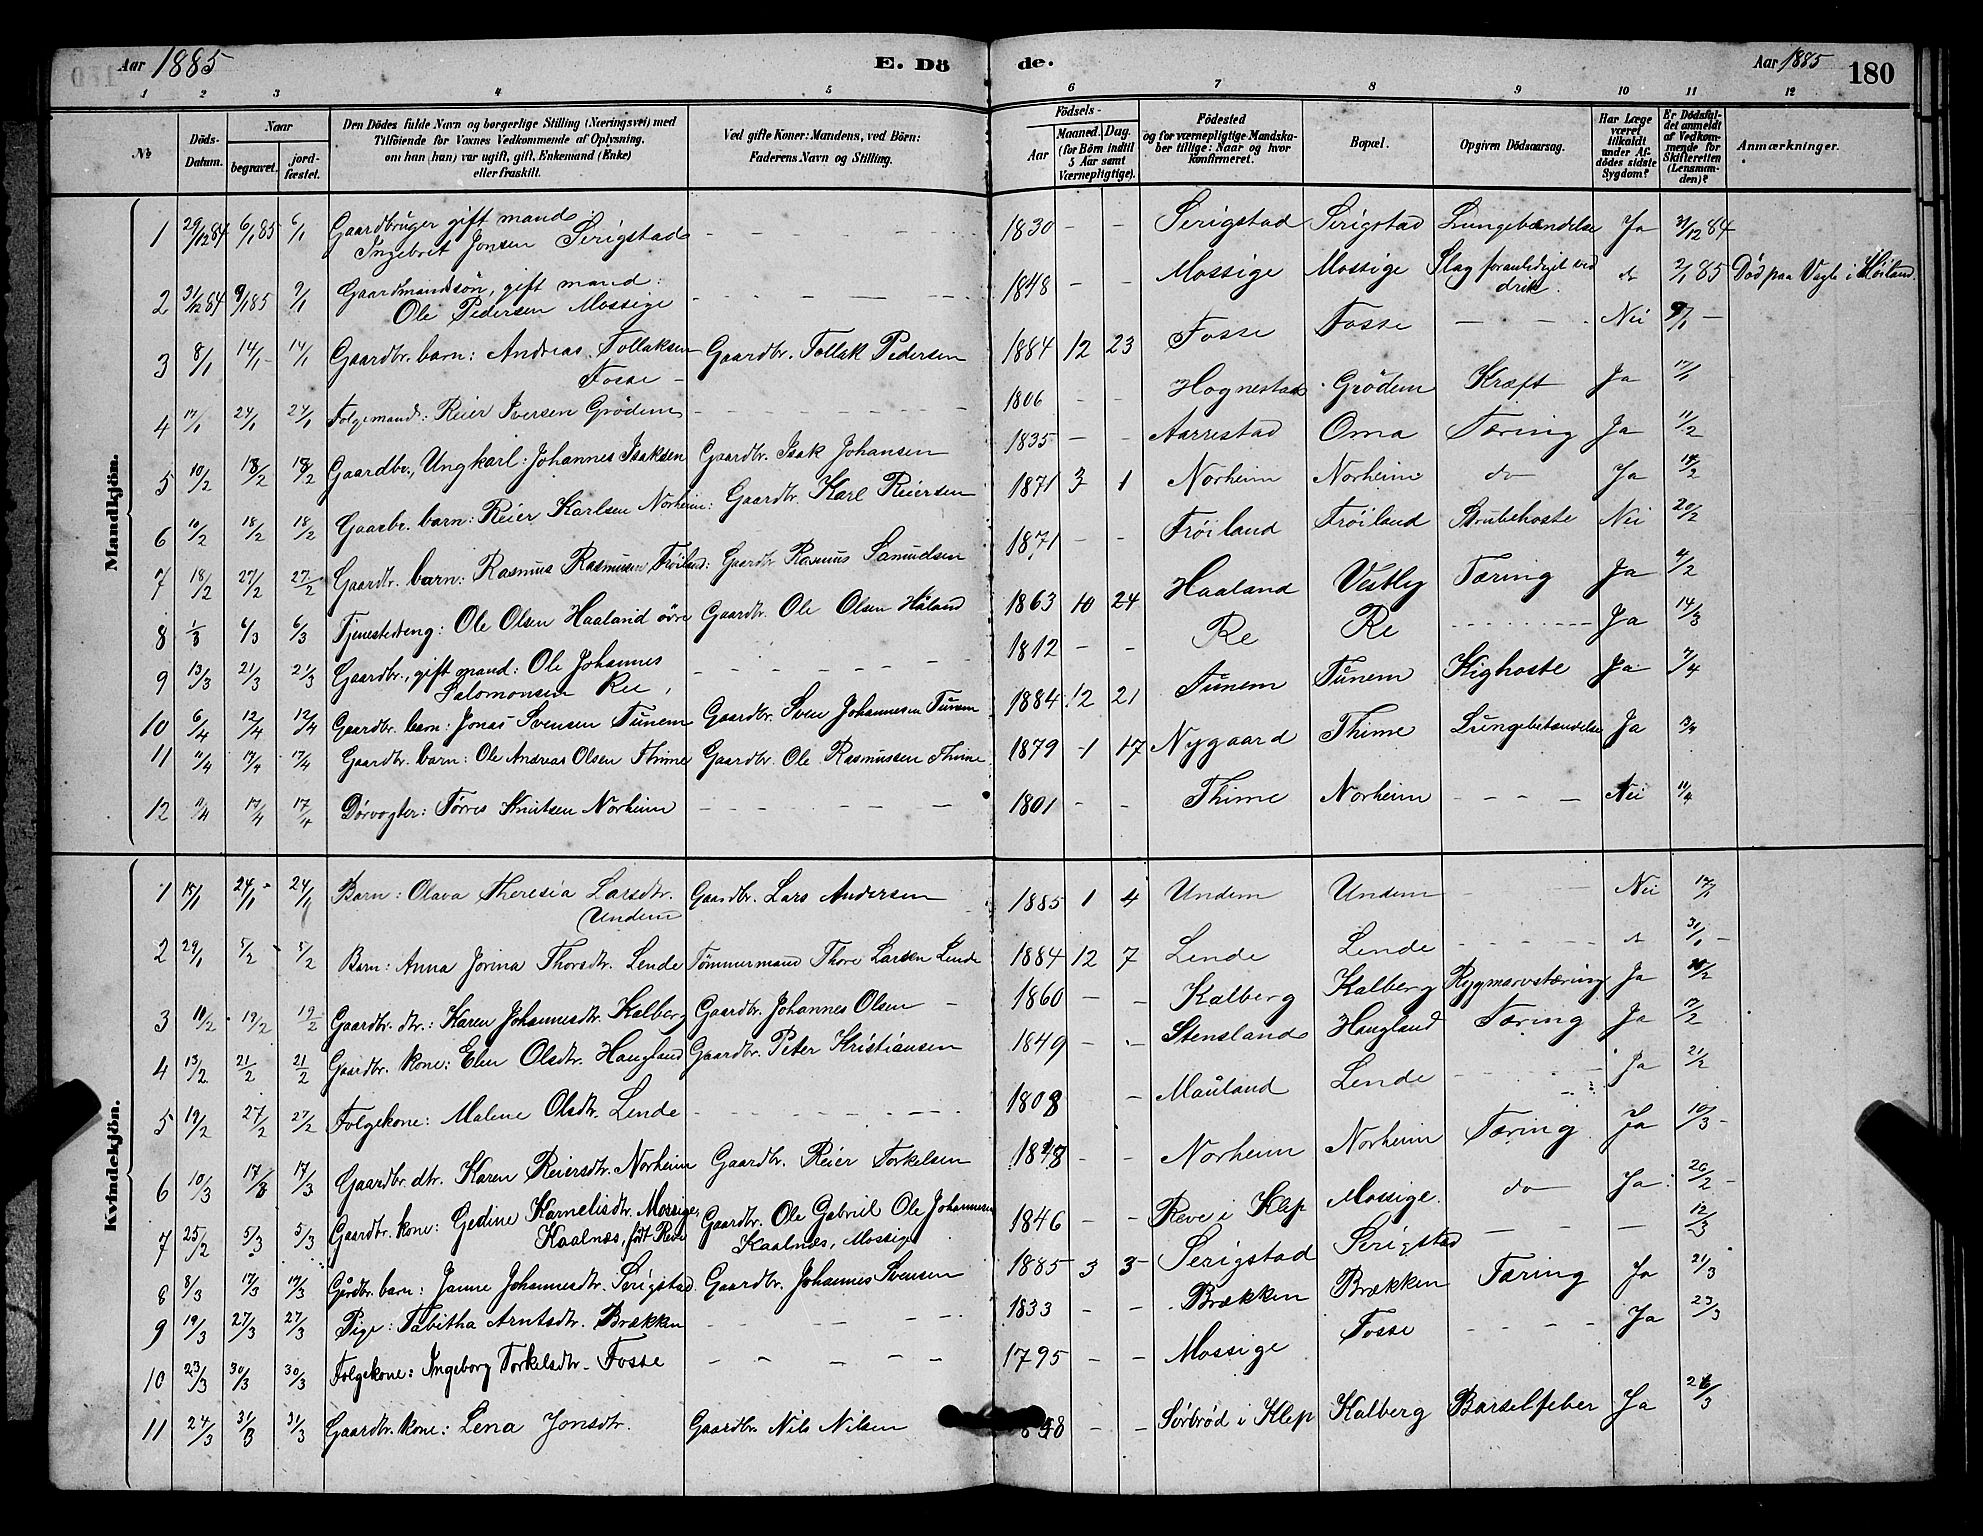 Aar 1885 E. Dö de. Aar 1885 180
1 2 3 4 5 6 7 8 9 10 11 12
No
Döds-Datum.
Naar
begravet.
jord-fæstet.
Den Dödes fulde Navn og borgerlige Stilling (Næringsvei) med
Tilföiende for Voxnes Vedkommende af Oplysning,
om han (hun) var ugift, gift, Enkemand (Enke)
eller fraskilt.
Ved gifte Koner: Mandens, ved Börn:
Faderens Navn og Stilling.
Födsels-
Aar
Maaned. Dag.
(for Börn indtil
5 Aar samt
Værnepligtige).
Födested
og for værnepligtige Mandska-
ber tillige: Naar og hvor
konfirmeret.
Bopæl.
Opgiven Dödsaarsag.
Har Læge
været
tilkaldt
under Af-
dödes sidste
Sygdom?
Er Dödsfal-
det anmeldt
af Vedkom-
mende for
Skifteretten
(Lensman-
den)?
Anmærkninger.
Mandkjön.
1 29/12 84 6/1 85 6/1 Gaardbruger gift mand
Ingebret Jonsen Serigstad - - - - - 1830 - - Serigstad Serigstad Lungebændelse Ja 31/12 84
2 31/12 84 9/1 85 9/1 Gaardmandsön, gift mand:
Ole Pedersen Mossige - - - - - 1848 - - Mossige Mossige Slag foranlediget ved drik. do 2/1 85 Död paa Vagle i Höiland.
3 8/1 14/1 14/1 Gaardbr. barn: Andreas Tollaksen
Fosse - Gaardbr. Tollak Pedersen 1884 12 23 Fosse Fosse - - Nei 9/1 -
4 17/1 24/1 24/1 Folgemand: Reier Iversen Grödem - - - - 1806 - - Hognestad Grödem Kræft Ja 17/1
5 10/2 18/2 18/2 Gaardbr., Ungkarl: Johannes Isaksen Gaardbr. Isak Johansen 1835 - - Aarrestad Oma Tæring Ja 11/2
6 10/2 18/2 18/2 Gaarbr. barn: Reier Karlsen Norheim: Gaardbr. Karl Reiersen 1871 3 1 Norheim Norheim do Ja 14/2
7 18/2 27/2 27/2 Gaardbr. barn: Rasmus Rasmussen Fröiland: Gaardbr. Rasmus Samuelsen 1871 - - Fröiland Fröiland Strubehoste Nei 20/2
8 1/3 6/3 6/3 Tjenestedreng: Ole Olsen Haaland övre Gaardbr. Ole Olsen Håland 1863 10 24 Haaland Vestly Tæring Ja 4/2
9 13/3 21/3 21/3 Gaardbr., gift mand: Ole Johannes
Salomonsen Ree, - - - - 1812 - - Re Re - - - Ja 14/3
10 6/4 12/4 12/4 Gaardbr. barn: Jonas Svensen Tunem Gaardbr. Sven Johannesen Tunem 1884 12 21 Tunem Tunem Kighoste Ja 7/4
11 11/4 17/4 17/4 Gaardbr. barn: Ole Andreas Olsen Thime Gaardbr. Ole Rasmussen Thime 1879 1 17 Nygaard Thime Lungebetændelse Ja 13/4
12 11/4 17/4 17/4 Dörvogter: Törres Knutsen Norheim - - - - 1801 - - Thime Norheim - - - - Nei 11/4
Kvindekjön.
1 15/1 24/1 - 24/1 Barn: Olava Theresia Larsdtr.
Undem Gaardbr. Lars Andersen 1885 1 4 Undem Undem - - Nei 17/1
2 29/1 5/2 - 5/2 Barn: Anna Jorina Thorsdtr. Lende Tömmermand Thore Larsen Lende 1884 12 7 Lende Lende - - - do 31/1 -
3 11/2 19/2 19/2 Gaardbr. dtr.: Karen Johannesdtr. Kalberg Gaardbr. Johannes Olsen - 1860 - - Kalberg Kalberg Rygmarvstæring Ja
4 13/2 21/2 21/2 Gaardbr. kone: Elen Olsdtr. Haugland Gaardbr. Peter Kristiansen 1849 - - Stensland Haugland Tæring Ja 17/2
5 19/2 27/2 27/2 Folgekone: Malene Olsdtr. Lende - - - - 1808 - Mauland Lende - - - Ja 21/2
6 10/3 17/3 17/3 Gaardbr. dtr. Karen Reiersdtr. Norheim Gaardbr. Reier Torkelsen 1848 - - Norheim Norheim Tæring Ja 10/3 -
7 25/2 5/3 5/3 Gaardbr. kone: Gedine Kornelisdtr. Mossige,
Kaalnæs, födt Reve Gaardbr. Ole Gabriel Ole Johannesen
Kaalnæs, Mossige 1846 - - Reve i Klep Mossige. do Ja 26/2 -
8 8/3 17/3 17/3 Gårdbr. barn: Janne Johannesdtr. Serigstad Gaardbr. Johannes Svensen 1885 3 3 Serigstad Serigstad - - - 12/3
9 19/3 27/3 27/3 Pige: Tabitha Arntsdtr. Brækken - - - - 1833 - - Brækken Brækken Tæring Ja 21/3
10 23/3 30/3 30/3 Folgekone: Ingeborg Torkelsdtr. Fosse - - - - 1795 - - Mossige Fosse - - - - Ja 23/3
11 24/3 31/3 31/3 Gaardbr. kone: Lena Jonsdtr. Gaardbr. Nils Nilsen 858 - - Sörbröd i Klep Kalberg Barselfeber Ja 26/3